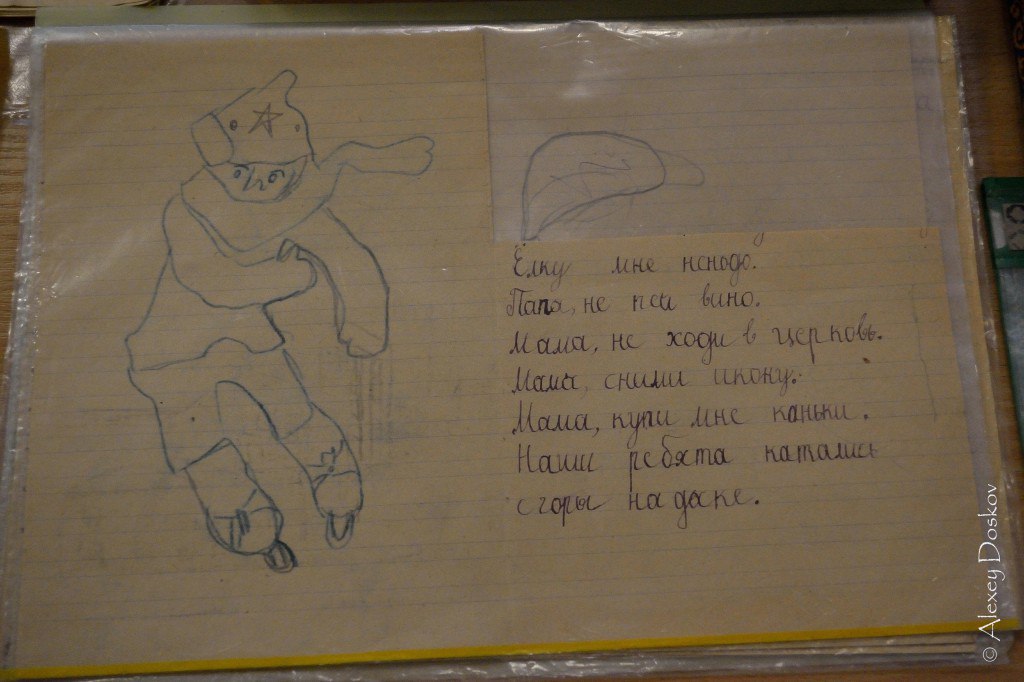 Ёлку мне ненодо.
Папа, не пей вино.
Мама, не ходи в церковь.
Мама, сними икону.
Мама, купи мне каньки.
Наши ребята катались
с горы на доске.
© Alexey Doskov